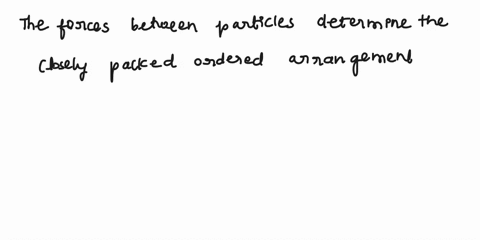 The forces between particles determine the
closely packed ordered arrangement